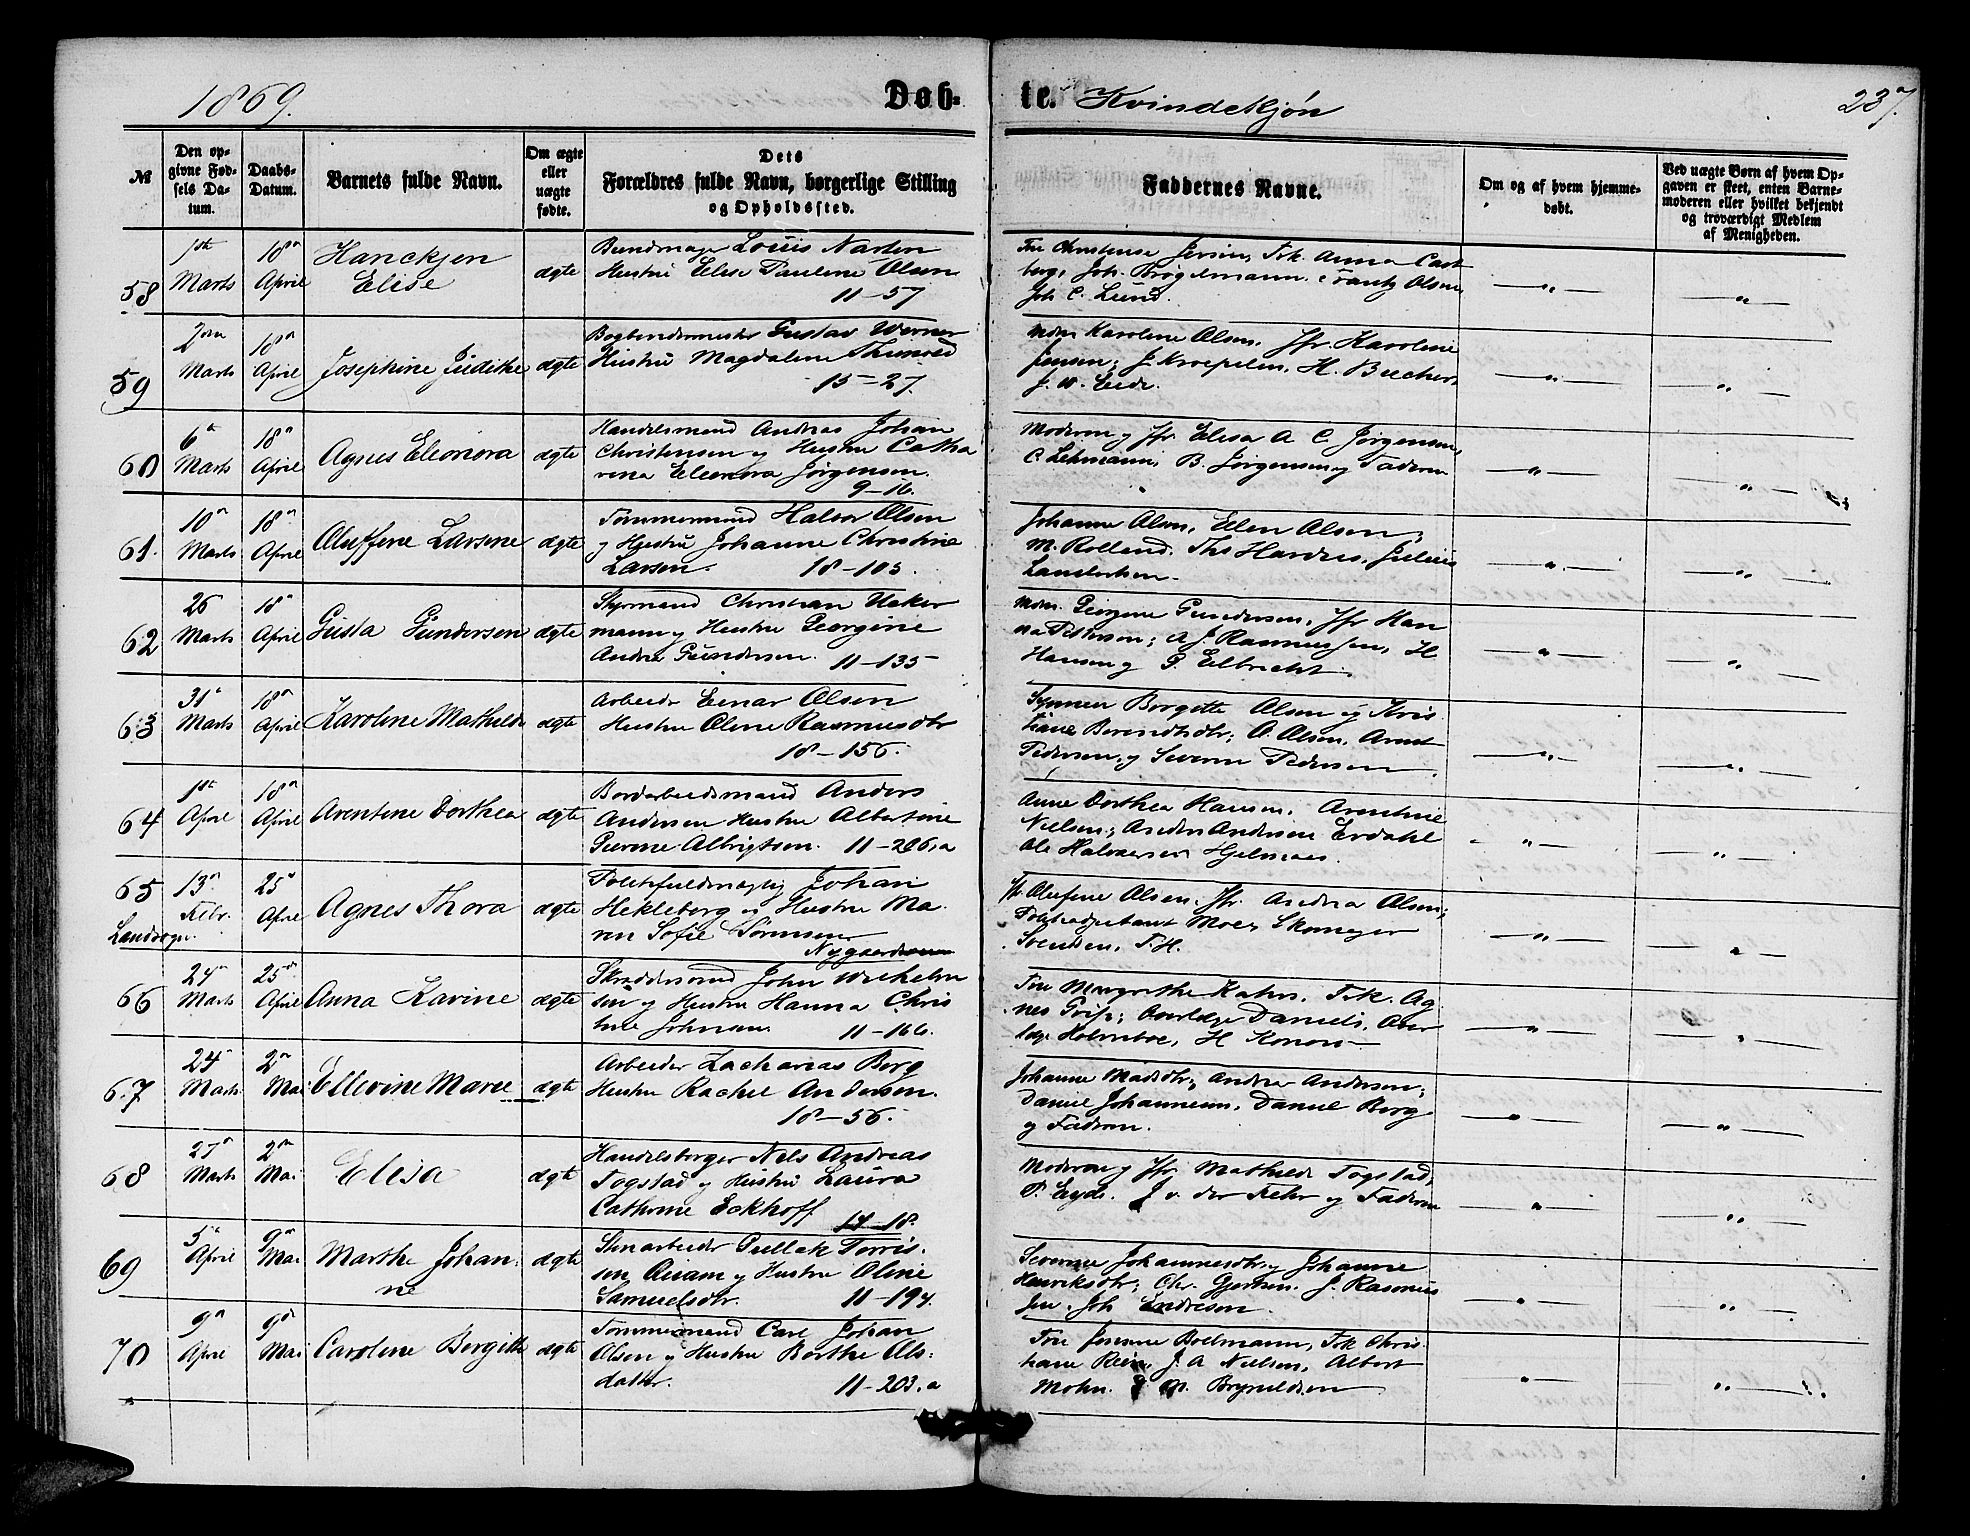 1869.
Døb-
te. Kvindekjön
237.
№
Den opgivne Fødsels Datum.
Daabs-Datum.
Barnets fulde Navn.
Om ægte eller uægte fødte.
Dets
Forældres fulde Navn, borgerlige Stilling
og Opholdssted.
Faddernes Navne.
Om og af hvem hjemmedøbt.
Ved uægte Børn af hvem Opgaven er skeet, enten Barnemoderen eller hvilket bekjendt og troværdigt Medlem af Menigheden.
58 1ste Marts 18n April
Hanckjen
Elise
ægte
Louis
Hustru Elise Pauline Olsen
11-57
Anna Cast
berg, Joh. Brögelmann, Frantz Olsen,
Joh. C. Lund.
59 2den Marts 18n April
Josephine Judithe
ægte
Bogbindermester Gustav Werner
Hustru Magdalene
15-27.
Mdm Karoline Olsen, Jfr. Karoline
Jensen; J. Kroepelin, H. Beecher
60 6te Marts 18n April
Agnes Eleonora
ægte
Handelsmand Andreas Johan
Christensen og Hustru Catha
rina Eleonora Jørgensen.
9-16.
Moderen og Jfr. Elisa A C. Jørgensen,
C. Lehmann, B. Jørgensen og Faderen
61. 10n Marts 18n April
Oluffine Larsine
ægte
Tømmermand Halvor Olsen
og Hustru Johanne Christine
Larsen. 18-105.
Johanne Olsen, Ellen Olsen;
M. Rolland, Ths Julius
62 26 Marts 18n April
Gusta Gundersen
ægte
Styrmand Christian Ucker
mann og Hustru Georgine
Andrea Gundersen. 11-135
Mdm. Georgine Gundersen, Jfr Han
na Pettersen; A J. Rasmussen, H
Hansen og P. Elbrecht.
63 31te Marts 18n April
Karoline Mathilde
ægte
Arbeider Einar Olsen
Hustru Oline Rasmusdtr
18-156.
Borgitte Olsen og Kris
tiane Berendtsdtr; O. Olsen, Arent
Pedersen, og Severin Pedersen.
64 1ste April 18n April
Arentine Dorthea
ægte
Bordarbeidsmand Anders
Andersen Hustru Albertine
Albrigtsen. 11-206,a
Anne Dorthea Hansen, Arentine
Nielsen; Anders Andersen Erdahl
Ole Halvorsen
65 13n Febr. 25n April
Landsogn.
Agnes Thora
ægte
Politifuldmægtig Johan
Hekleberg og Hustru Ma-
ren Sofie Sørensen
Jfr Olufine Olsen, Jfr. Andrea Olsen;
Svendsen, T. H.
66 24n Marts 25n April
Anna Kavine
ægte
Skræddersvend John Wilhelm
sen og Hustru Hanna Chris
tine Johnsen. 11-166.
Fru Margrethe Frk. Ag
nes Overlæge Daniels, Over
læge Holmboe, H Konow
67 24 Marts 2n Mai
Ellevine Marie
ægte
Arbeider Zacharias Berg
Hustru Rachel Andersen.
18-56.
Johanne Madsdtr, Andrea Andersen;
Daniel Johannesen, Daniel Berg
og Faderen.
68 27n Marts 2n Mai
Elisa
ægte
Handelsborger Nils Andreas
Togstad og Hustru Laura
Cathrine Eckhoff
14-18.
Moderen og Jfr Mathilde Togstad,
P. Eyde. J v. der Fehr og Faderen
69 5te April 9n Mai
Marthe Johan-
ne
ægte
Stenarbeider Pullek Torris-
sen Qvam og Hustru Oline
Samuelsdtr. 11-194.
Severine Johannesdtr, Johanne
Henriksdtr; Chr. Gjertsen. J. Rasmus
sen. Joh Endresen.
70 9n April 9n Mai
Caroline Bergitte
ægte
Tømmermand Carl Johan
Olsen og Hustru Berthe Ols-
datter. 11-203,a
Fru Bollmann, Frk Chris-
tiane J. A Nielsen, Albert
Mohn. Brynildsen